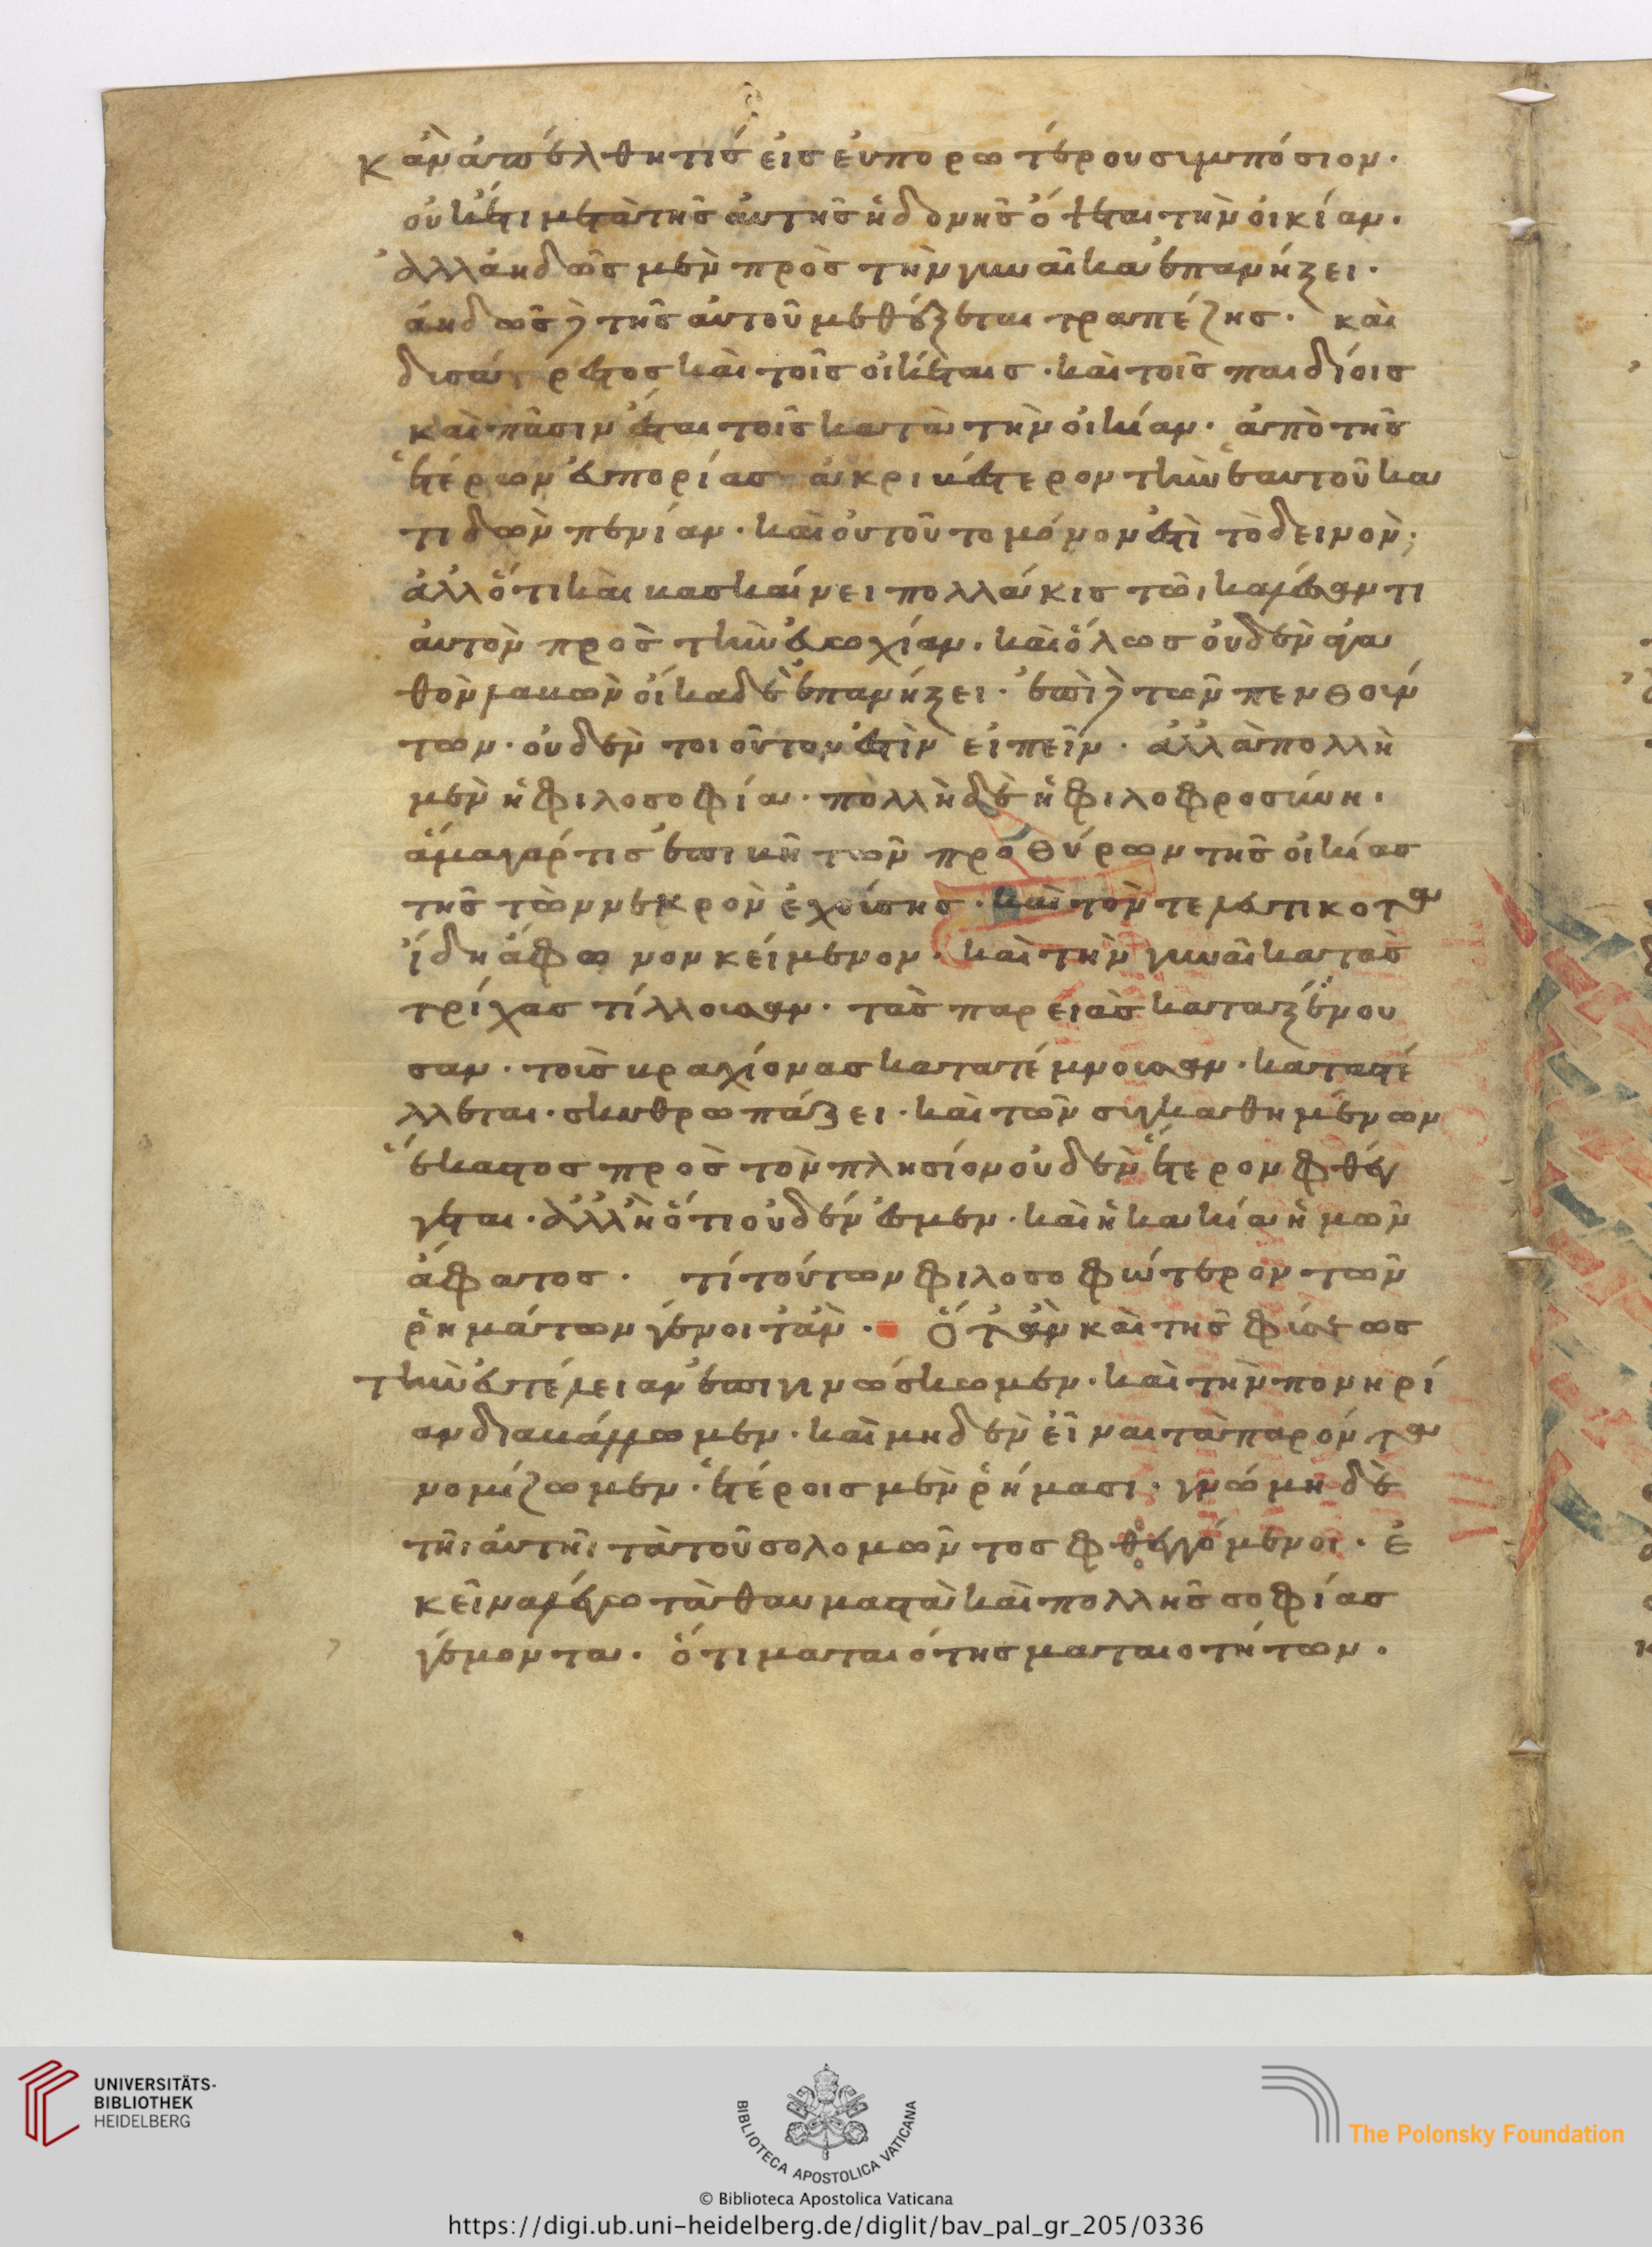 κἂν ἀπέλθη τίς εἰς ἐυπορωτέρου συμπόσιον.
οὐκέτι μετὰ τῆς ἀυτῆς ἡδονῆς ὄψεται τὴν ὀικίαν.
ἀλλ ἀηδῶς μὲν πρὸς τὴν γυναῖκα ἐπανήξει.
ἀηδῶς δὲ τῆς ἀυτοῦ μεθέξεται τραπέζης. καὶ
δυσάρεστος καὶ τοῖς οἰκέταις. καὶ τοῖς παιδίοις
καὶ πᾶσιν ἔσται τοῖς κατὰ τὴν οἰκίαν. ἀπὸ τῆς
ἑτέρων ἐυπορίας ἀκριβέστερον τὴν ἑαυτοῦ κα
τιδὼν πενίαν. καὶ οὐ τοῦτο μόνον ἐστὶ τὸ δεινὸν;
ἀλλ ὅτι καὶ βασκαίνει πολλάκις τῶι καλέσαντι
ἀυτὸν πρὸς τὴν ἐυωχίαν. καὶ ὅλως οὐδὲν ἀγα
θὸν λαβὼν οἴκαδε ἐπανήξει. ἐπὶ δὲ τῶν πενθούν
των. οὐδὲν τοιοῦτον ἐστὶν εἰπεῖν. ἀλλὰ πολλὴ
μὲν ἡ φιλοσοφία. πολλὴ δὲ ἡ φιλοφροσύνη.
ἅμα γάρ τις ἐπιβῆ τῶν προθύρων τῆς οἰκίας
τῆς τὸν νεκρὸν ἐχούσης. καὶ τὸν τελευτικότα
ἴδη ἄφωνον κείμενον. καὶ τὴν γυναῖκα τὰς
τρίχας τίλλουσαν. τὰς παρειὰς καταξένου
σαν. τοὺς βραχίονας κατατέμνουσαν. καταστέ
λλεται. σκυθρωπάζει. καὶ τῶν συγκαθημένων
ἕκαστος πρὸς τὸν πλησίον οὐδὲν ἕτερον φθέγ
γεται. ἀλλ ἢ ὅτι οὐδέν ἐσμεν. καὶ ἡ κακία ἡμῶν
ἄφατος. τί τούτων φιλοσοφώτερον τῶν
ῥημάτων γένοιτ ἂν. ὅτ ἂν καὶ τῆς φύσεως
τὴν ἐυτέλειαν ἐπιγινώσκωμεν. καὶ τὴν πονηρί
αν διαβάλλωμεν. καὶ μηδὲν εἶναι τὰ παρόντα
νομίζωμεν. ἑτέροις μὲν ῥήμασι. γνώμη δὲ
τῆι ἀυτῆι τὰ τοῦ σολομῶντος φθεγγόμενοι. ἐ
κεῖνα λέγω τὰ θαυμαστὰ καὶ πολλῆς σοφίας
γέμοντα. ὅτι ματαιότης ματαιοτήτων.
UNIVERSITÄTS-
BIBLIOTHEK
HEIDELBERG
BIBLIOTECA APOSTOLICA VATICANA
The Polonsky Foundation
© Biblioteca Apostolica Vaticana
https://digi.ub.uni-heidelberg.de/diglit/bav_pal_gr_205/0336